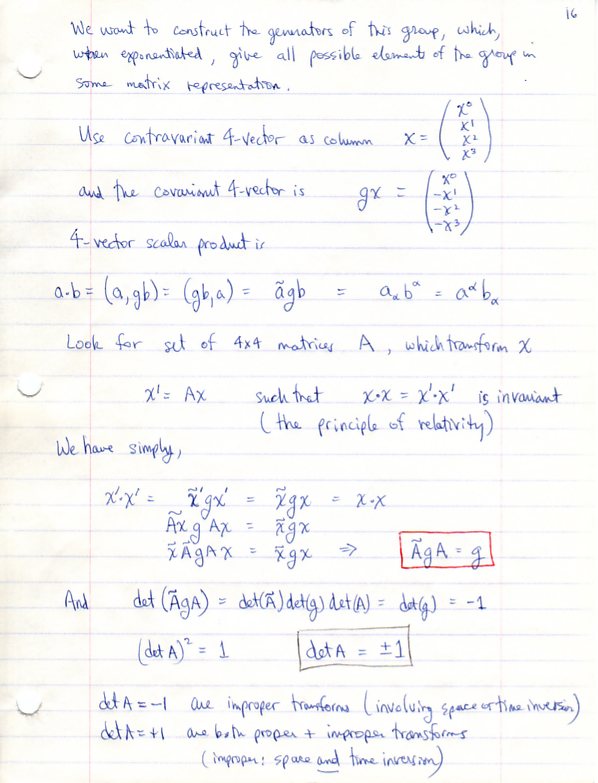 16
We want to construct the generators of this group, which,
when exponentiated, give all possible elements of the group in
some matrix representation.
Use contravariant 4-vector as column x = ( x⁰ x¹ x² x³ )
and the covariant 4-vector is gx = ( x⁰ -x¹ -x² -x³ )
4-vector scalar product is
a·b = (a, gb) = (gb, a) = ãgb = aₐbᵅ = aᵅbₐ
Look for set of 4x4 matrices A, which transform x
x' = Ax such that x·x = x'·x' is invariant
(the principle of relativity)
We have simply,
x'·x' = x̃'gx' = x̃gx = x·x
Ãx g Ax = x̃gx
x̃ÃgAx = x̃gx ⇒ ÃgA = g
And det(ÃgA) = det(Ã)det(g)det(A) = det(g) = -1
(det A)² = 1 det A = ±1
det A = -1 are improper transforms (involving space or time inversion)
det A = +1 are both proper + improper transforms
(improper: space and time inversion)